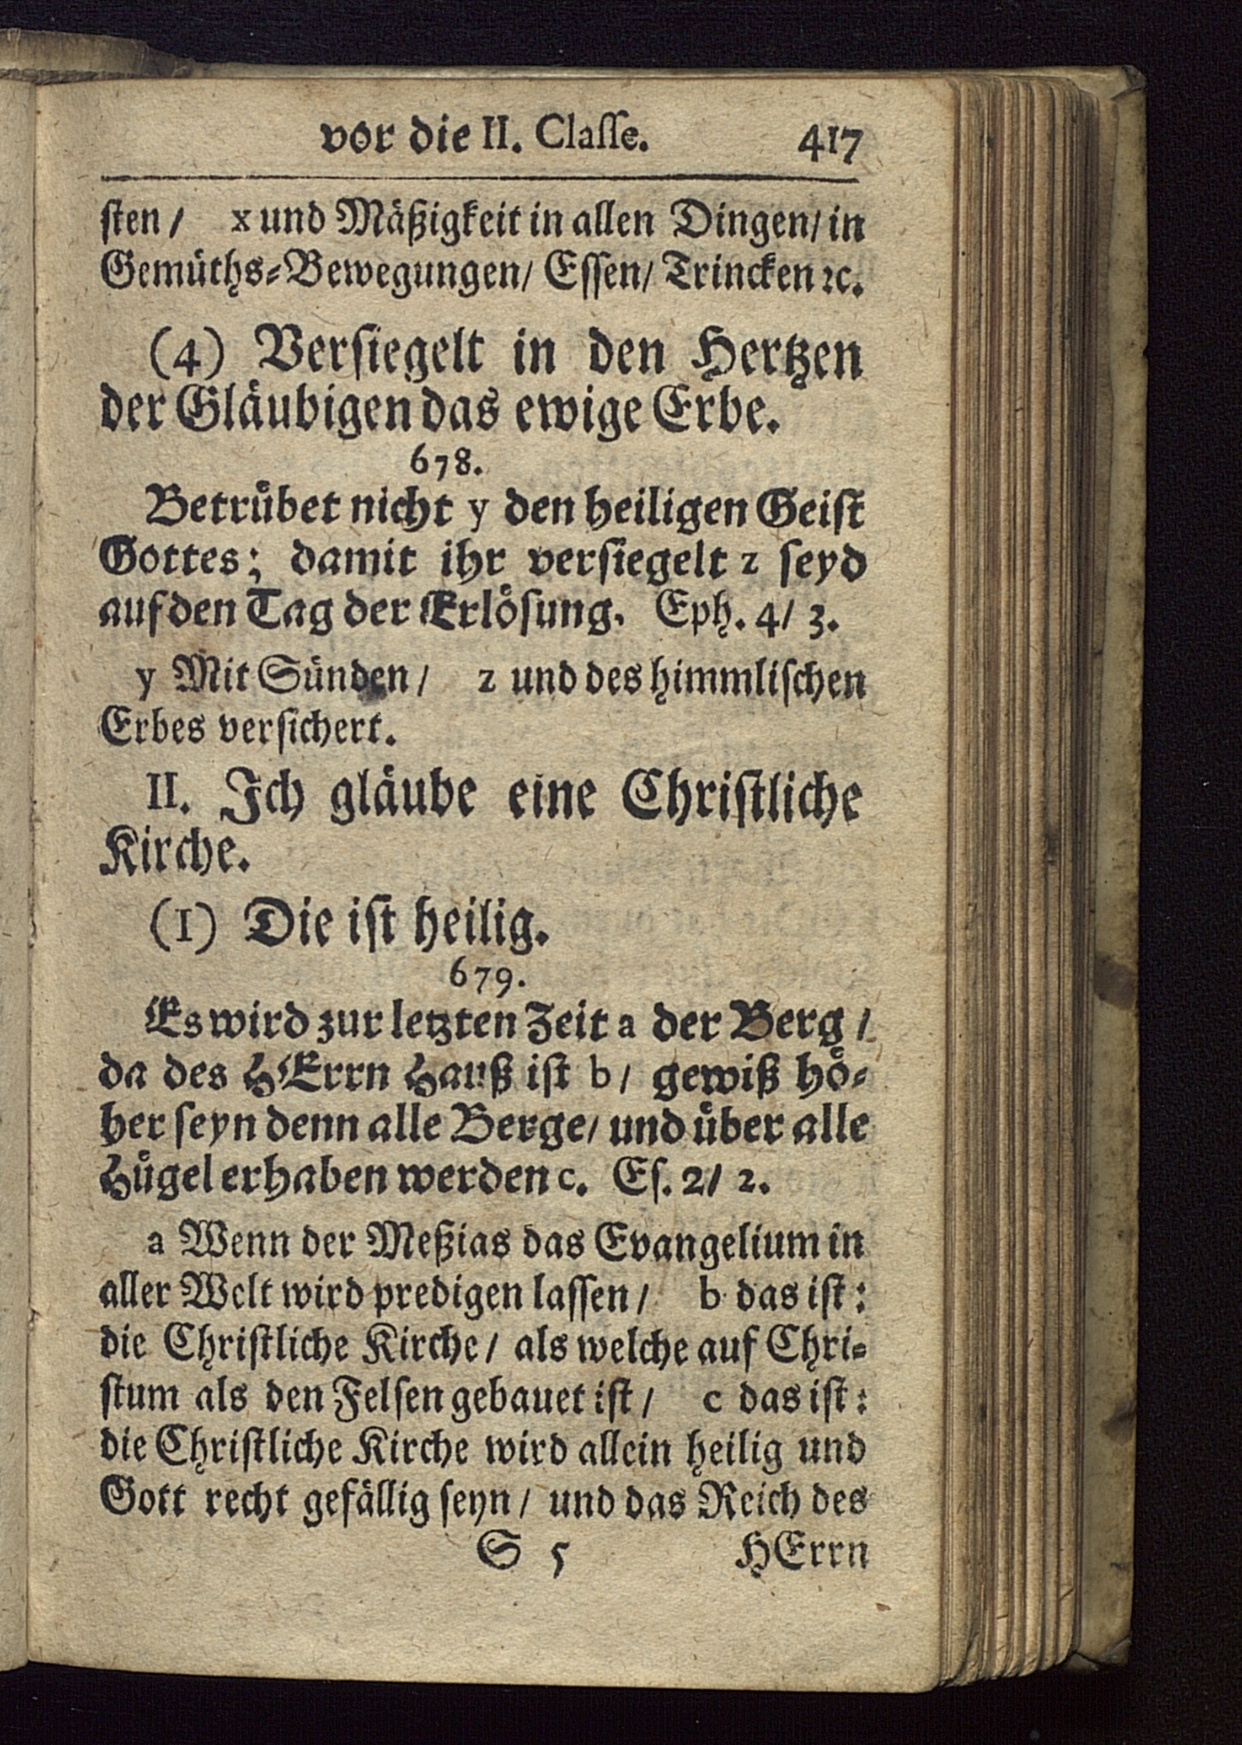 vor die II. Claſſe. 417
ſten / x und Mäßigkeit in allen Dingen/ in
Gemüths⸗Bewegungen/ Eſſen/ Trincken ꝛc.
(4) Verſiegelt in den Hertzen
der Gläubigen das ewige Erbe.
678.
Betrübet nicht y den heiligen Geiſt
Gottes; damit ihr verſiegelt z ſeyd
auf den Tag der Erlöſung. Eph. 4/ 3.
y Mit Sünden / z und des himmliſchen
Erbes verſichert.
II. Ich gläube eine Chriſtliche
Kirche.
(1) Die iſt heilig.
679.
Es wird zur letzten Zeit a der Berg /
da des HErrn Hauß iſt b / gewiß hö⸗
her ſeyn denn alle Berge/ und über alle
Hügel erhaben werden c. Eſ. 2/ 2.
a Wenn der Meßias das Evangelium in
aller Welt wird predigen laſſen / b das iſt:
die Chriſtliche Kirche / als welche auf Chri⸗
ſtum als den Felſen gebauet iſt / c das iſt:
die Chriſtliche Kirche wird allein heilig und
Gott recht gefällig ſeyn / und das Reich des
S 5 HErrn